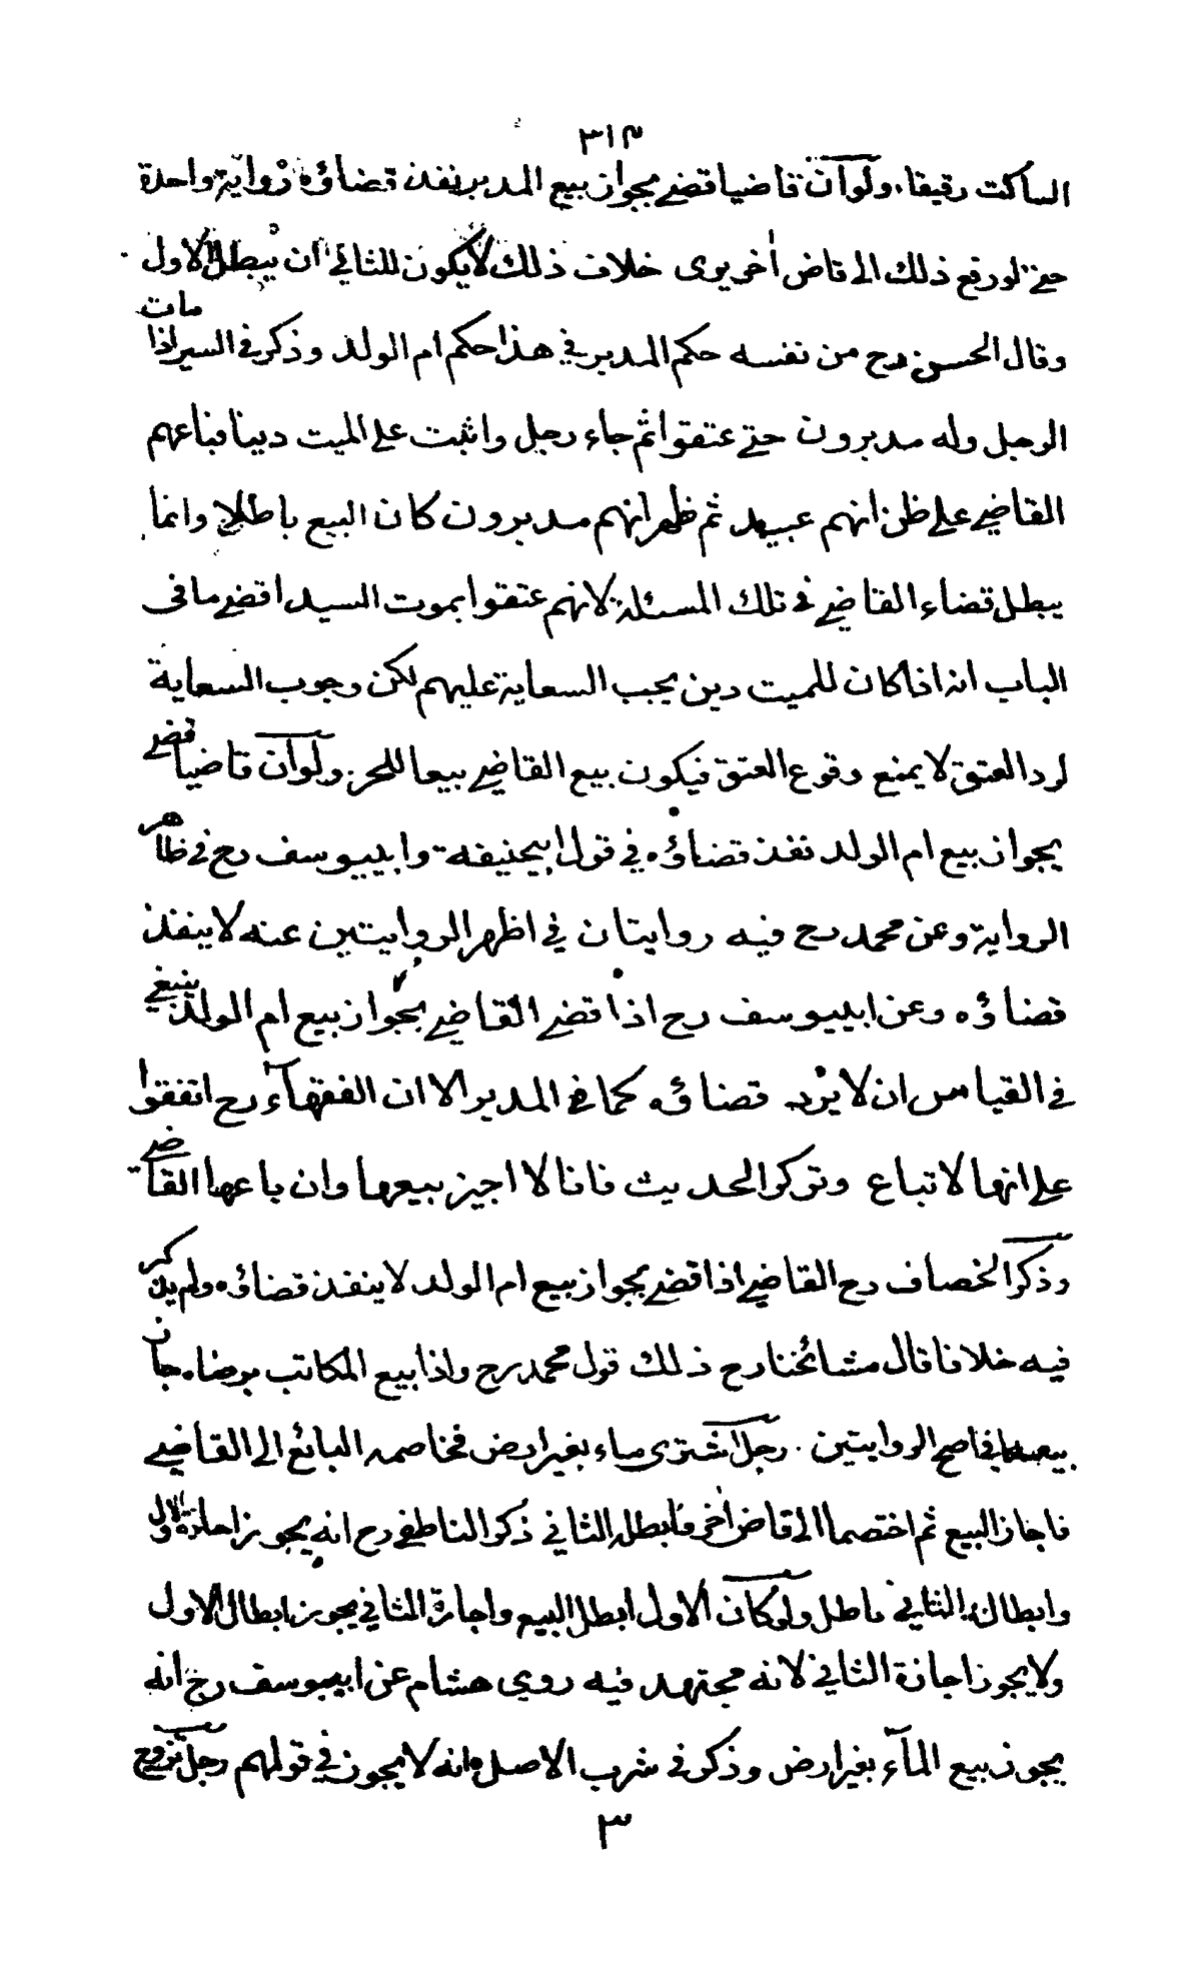 ٣١٣
الساكت رقيقا، ولو ان قاضيا قضى بجواز بيع المدبر نفذ قضاؤه رواية واحدة
حتى لو رفع ذلك الى قاض اخر يرى خلاف ذلك لا يكون للثاني ان يبطل الاول
وقال الحسن رح من نفسه حكم المدبر في هذا حكم ام الولد وذكر في السير اذا مات
الرجل وله مدبرون حتى عتقوا ثم جاء رجل واثبت على الميت دينا فباعهم
القاضي على ظن انهم عبيد ثم ظهر انهم مدبرون كان البيع باطلا وانما
يبطل قضاء القاضي في تلك المسئلة لانهم عتقوا بموت السيد اقصى ما في
الباب انه اذا كان للميت دين يجب السعاية عليهم لكن وجوب السعاية
لرد العتق لا يمنع وقوع العتق فيكون بيع القاضي بيعا للحر، ولو ان قاضيا قضى
بجواز بيع ام الولد نفذ قضاؤه في قول ابيحنيفة وابييوسف رح في ظاهر
الرواية وعن محمد رح فيه روايتان في اظهر الروايتين عنه لا ينفذ
قضاؤه وعن ابييوسف رح اذا قضى القاضي بجواز بيع ام الولد ينبغي
في القياس ان لا يرد قضاؤه كما في المدبر الا ان الفقهاء رح اتفقوا
على انها لا تباع وتركوا الحديث فانا لا اجيز بيعها وان باعها القاضي
وذكر الخصاف رح القاضي اذا قضى بجواز بيع ام الولد لا ينفذ قضاؤه ولم يذكر
فيه خلافا قال مشائخنا رح ذلك قول محمد رح واذا بيع المكاتب برضاه جاز
بيعه في اصح الروايتين . رجل اشترى ماء بغير ارض فخاصمه البائع الى القاضي
فاجاز البيع ثم اختصما الى قاض اخر فابطله الثاني ذكر الناطفي رح انه يجوز اجازة الاول
وابطال الثاني باطل ولو كان الاول ابطل البيع واجازة الثاني يجوز ابطال الاول
ولا يجوز اجازة الثاني لانه مجتهد فيه روي هشام عن ابييوسف رح انه
يجوز بيع الماء بغير ارض وذكر في شرب الاصل انه لا يجوز في قولهم رجل تزوج
٣